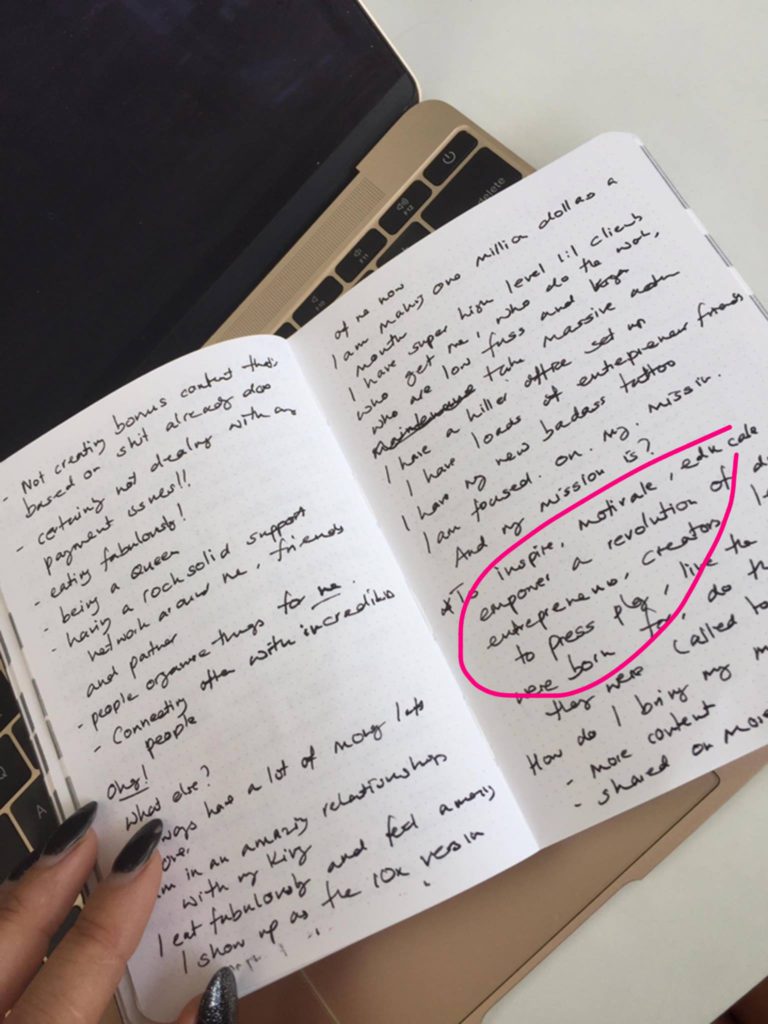 - Not creating bonus content that's
based on shit already done
- certainly not dealing with any
payment issues!!
- eating fabulously!
- being a Queen
- having a rock solid support
network around me, friends
and partner
- people organise things for me.
- Connecting often with incredible
people
Ohg!
What else?
ways have a lot of money left
over.
am in an amazing relationships
with my King
I eat fabulously and feel amazing
I show up as the 10x version
of me now
I am making one million dollars a
month
I have super high level lil clients
who get me, who do the work,
who are low fuss and
maintenance take massive action
I have a killer office set up
I have loads of entrepreneur friends
I have my new badass tattoo
I am focused. on. my. mission.
And my mission is?
*To inspire, motivate, educate
empower a revolution of
entrepreneurs, creators
to press play, live the
were born for, do the
they were called to
How do I bring my
- more content
- shared on more
delete
F12
F11
Q
A